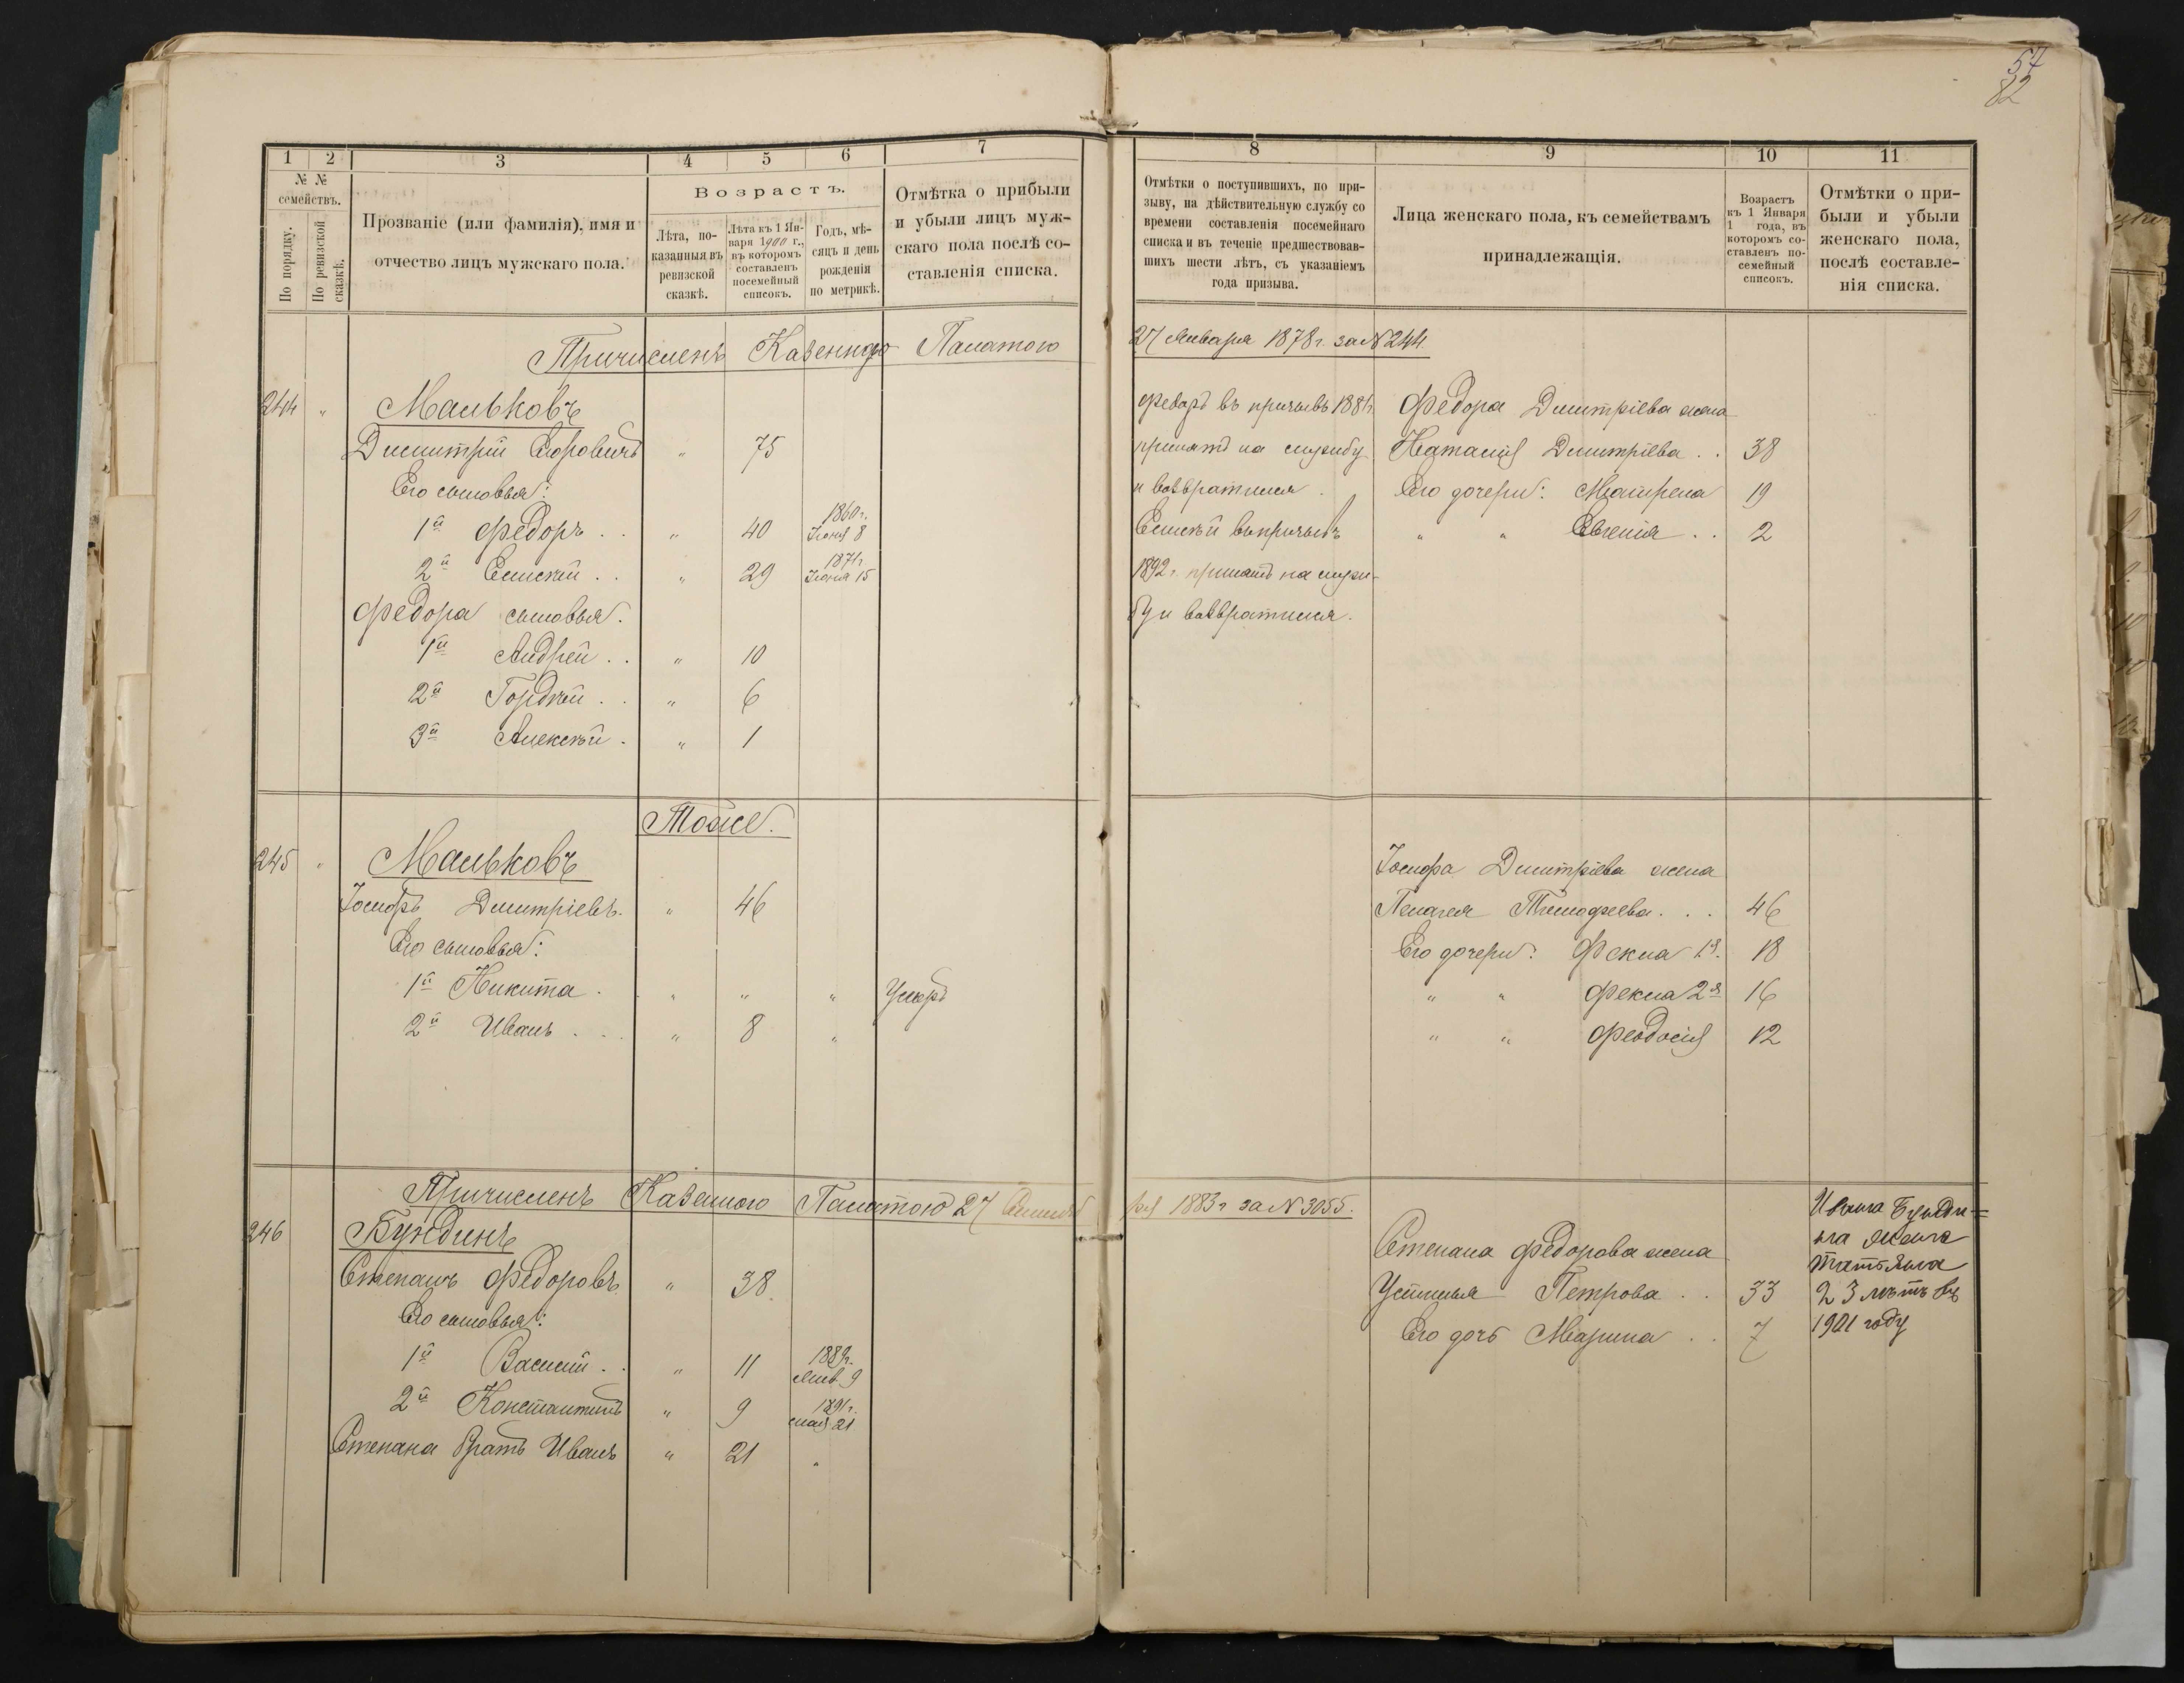 57
82
1 2 3 4 5 6 7
№ №
семействъ.
По порядку.
По ревизской сказкѣ.
Прозваніе (или фамилія), имя и
отчество лицъ мужскаго пола.
Возрастъ.
Лѣта, по-
казанныя въ
ревизской
сказкѣ.
Лѣта къ 1 Ян-
варя 1900 г.,
въ которомъ
составленъ
посемейный
списокъ.
Годъ, мѣ-
сяцъ и день
рожденія
по метрикѣ.
Отмѣтка о прибыли
и убыли лицъ муж-
скаго пола послѣ со-
ставленія списка.
Причисленъ Казенною Палатою
244 " Мальковъ
Димитрій " 75
Его сыновья:
1й Федоръ . . " 40 1860г. Іюня 8
2й Елисѣй . . " 29 1871г. Іюня 15
Федора сыновья.
1й Андрей . . " 10
2й Гордѣй . . " 6
3й Алексѣй . " 1
Тоже.
245 " Мальковъ
Іосифъ Дмитріевъ. " 46
Его сыновья:
1й Никита . " " " Умеръ
2й Иванъ . . . " 8 "
Причисленъ Казенною Палатою 27
246 Бундинъ
Степанъ Федоровъ " 38
Его сыновья:
1й Василій . . " 11 1889г. Янв. 9
2й Константинъ " 9 1891г. мая 21
Степана братъ Иванъ " 21 "
8 9 10 11
Отмѣтки о поступившихъ, по при-
зыву, на дѣйствительную службу со
времени составленія посемейнаго
списка и въ теченіе предшествовав-
шихъ шести лѣтъ, съ указаніемъ
года призыва.
Лица женскаго пола, къ семействамъ
принадлежащія.
Возрастъ
къ 1 Января
1 года, въ
которомъ со-
ставленъ по-
семейный
списокъ.
Отмѣтки о при-
были и убыли
женскаго пола,
послѣ составле-
нія списка.
27 Января 1878г. за № 244.
Федоръ въ призывъ 1881г. Федора Дмитріева жена
принятъ на службу Наталія Дмитріева . . 38
и возвратился. Его дочери: Матрена 19
Елисѣй въ призывъ " " Евгенія . . 2
1892г. принятъ на служ-
бу и возвратился.
Іосифа Дмитріева жена
Пелагея Тимофеева. . . 46
Его дочери: Фекла 1я. 18
" " Фекла 2я 16
" " Феодосія 12
1883г за № 3055.
Степана Федорова жена
Устинья Петрова . . 33
Его дочь Марина . . 7
Ивана Бунди=
на жена
Татьяна
23 лѣтъ въ
1901 году